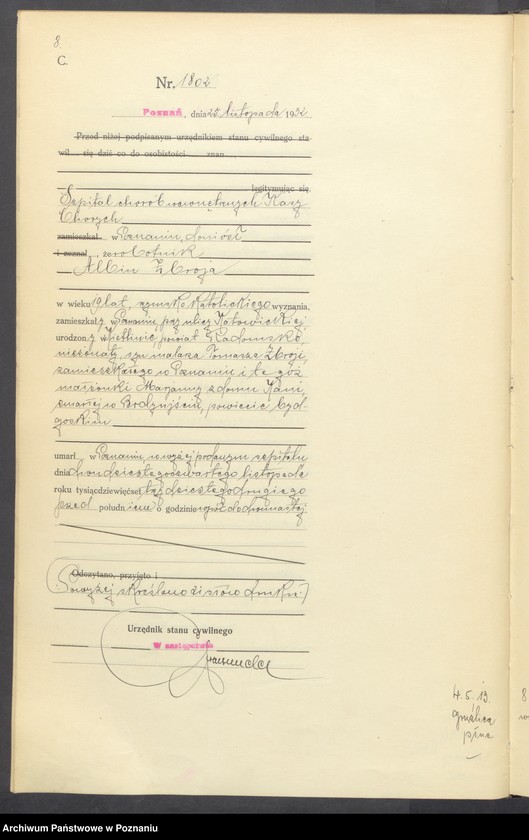 8.
C.
Nr. 1802
Poznań, dnia 25 listopada 1932
Przed niżej podpisanym urzędnikiem stanu cywilnego sta-
wił się dziś co do osobistości znan
legitymując się
Szpital chorób wewnętrznych Kasy
Chorych
zamieszkał w Poznaniu, doniósł
i zeznał, że robotnik
Albin Zbroja
w wieku 19 lat, rzymsko katolickiego wyznania,
zamieszkały w Poznaniu, przy ulicy Katowickiej
urodzony powiat Radomsko,
nieżonaty, syn malarza Tomasza Zbroji,
zamieszkałego w Poznaniu i tegoż
małżonki Marjanny z domu
zmarłej w powiecie byd-
goskim
umarł w Poznaniu w wyżej podanym szpitalu
dnia dwudziestego czwartego listopada
roku tysiąc dziewięćset trzydziestego drugiego
przed południem o godzinie wpół do dwunastej
Odczytano, przyjęto i
Powyżej skreślono słów druku.
Urzędnik stanu cywilnego
W zastępstwie
4. 5. 13.
8
Archiwum Państwowe w Poznaniu